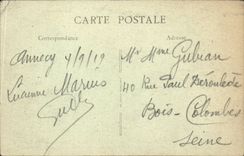 CARTE POSTALE
Correspondance
Adresse
Annecy 4/9/19
Lucienne Marius
Mr Mme Gulian
40 Rue Paul Deroulede
Bois-Colombes
Seine